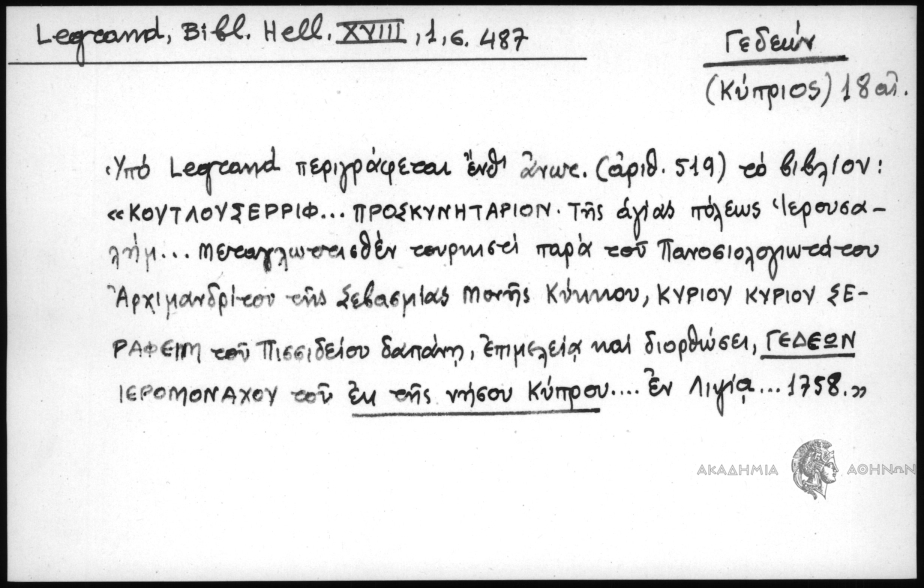 Legrand, Bibl. Hell. XVIII, 1, σ. 487
Γεδεών
(Κύπριος) 18 αἰ.
Ὑπό Legrand περιγράφεται ἔνθ' ἀνωτ. (ἀριθ. 519) τό βιβλίον:
«ΚΟΥΤΛΟΥΣΕΡΡΙΦ... ΠΡΟΣΚΥΝΗΤΑΡΙΟΝ. Τῆς ἁγίας πόλεως Ἱερουσα-
λήμ... Μεταγλωττισθέν τουρκιστί παρά τοῦ Πανοσιολογιωτάτου
Ἀρχιμανδρίτου τῆς Σεβασμίας Μονῆς Κύκκου, ΚΥΡΙΟΥ ΚΥΡΙΟΥ ΣΕ-
ΡΑΦΕΙΜ τοῦ Πισσιδείου δαπάνῃ, ἐπιμελείᾳ καί διορθώσει, ΓΕΔΕΩΝ
ΙΕΡΟΜΟΝΑΧΟΥ τοῦ ἐκ τῆς νήσου Κύπρου.... Ἐν Λιψίᾳ... 1758.»
ΑΚΑΔΗΜΙΑ ΑΘΗΝΩΝ